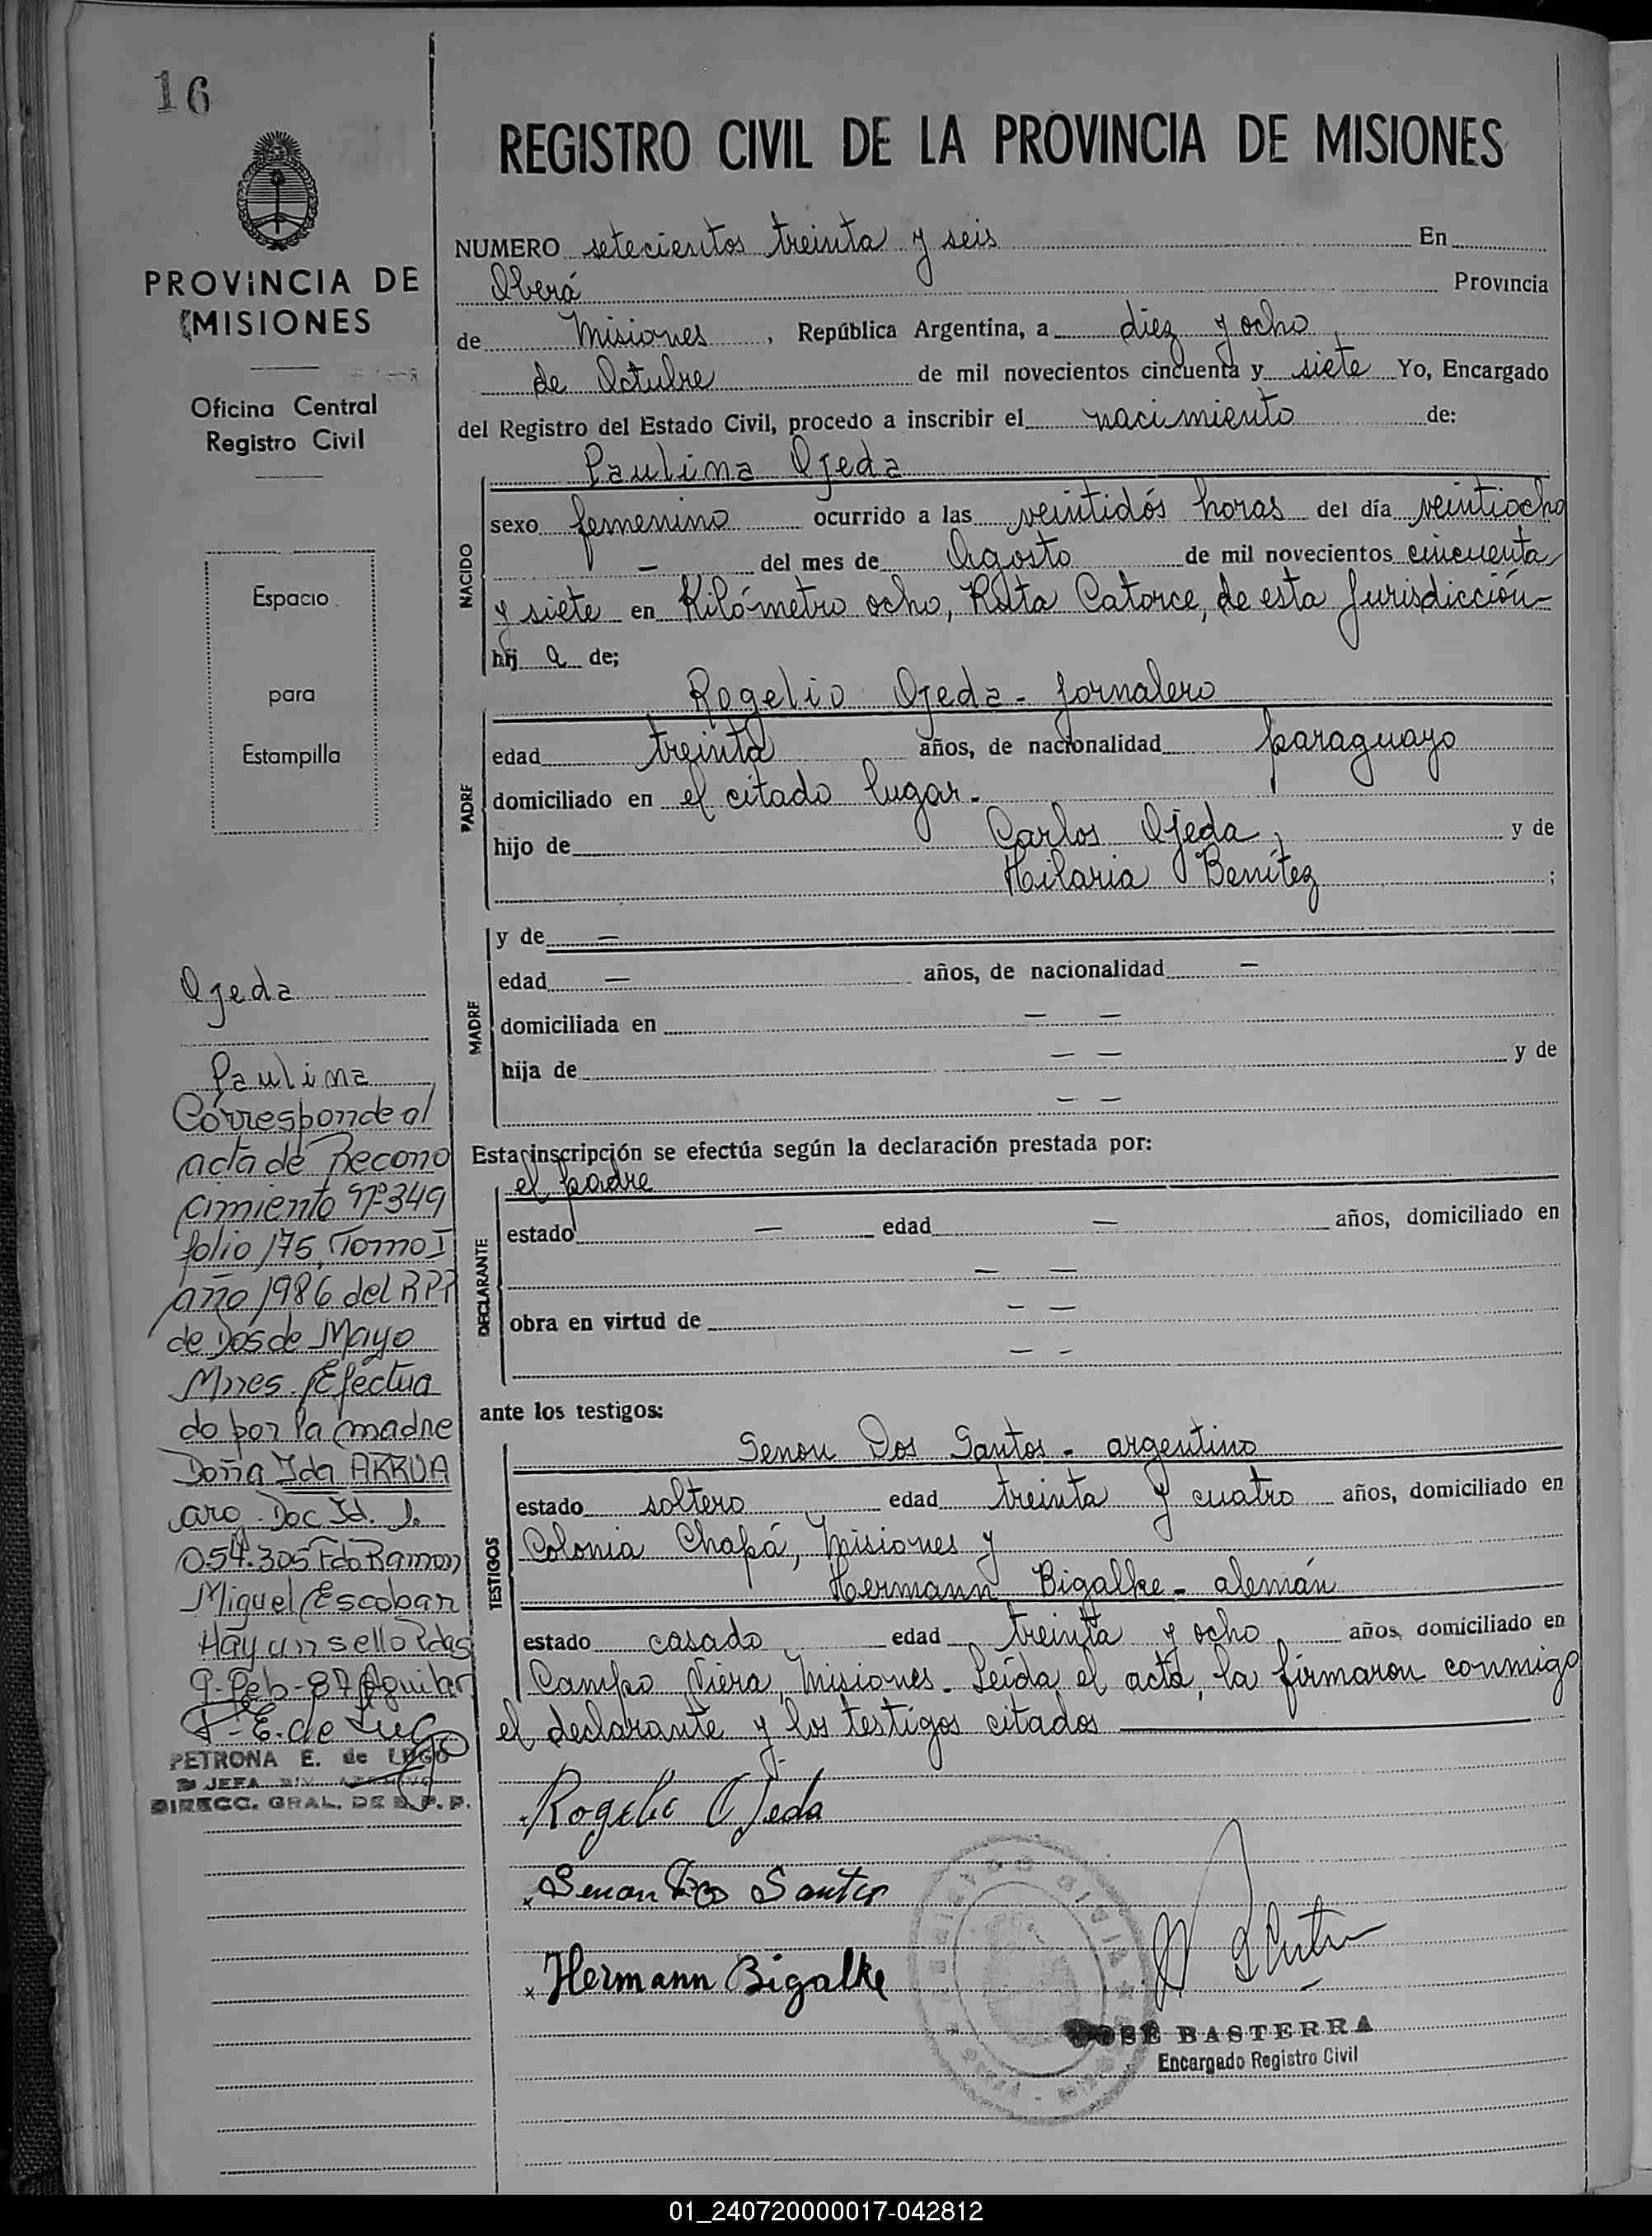 16
PROVINCIA DE
MISIONES
Oficina Central
Registro Civil
Espacio
para
Estampilla
Ojeda
Paulina
Corresponde al
acta de Recono
cimiento Nº 349
folio 175, Tomo I
año 1986 del RPP
de Dos de Mayo
Mnes. Efectua
do por la madre
Doña Ida ARRUA
aro. Doc Id. 1.
054.305 Fdo Ramon
Miguel Escobar
Hay un sello Pdas
9-Feb-87 Aguilar
P.E. de Lugo
PETRONA E. de LUGO
JEFA DIV.
DIRECC. GRAL. DE R.P.P.
REGISTRO CIVIL DE LA PROVINCIA DE MISIONES
NUMERO setecientos treinta y seis En
Oberá Provincia
de Misiones, República Argentina, a diez y ocho
de Octubre de mil novecientos cincuenta y siete Yo, Encargado
del Registro del Estado Civil, procedo a inscribir el nacimiento de:
Paulina Ojeda
NACIDO
sexo femenino ocurrido a las veintidós horas del día veintiocho
— del mes de Agosto de mil novecientos cincuenta
y siete en Kilómetro ocho, Ruta Catorce, de esta Jurisdicción-
hij a de;
Rogelio Ojeda - jornalero
PADRE
edad treinta años, de nacionalidad paraguayo
domiciliado en el citado lugar.
hijo de Carlos Ojeda, y de
Hilaria Benítez ;
MADRE
y de —
edad — años, de nacionalidad —
domiciliada en — —
hija de — — y de
— —
Esta inscripción se efectúa según la declaración prestada por:
el padre
DECLARANTE
estado — edad — años, domiciliado en
— —
obra en virtud de — —
— -
ante los testigos:
Senou Dos Santos - argentino
TESTIGOS
estado soltero edad treinta y cuatro años, domiciliado en
Colonia Chapá, Misiones y
Hermann Bigalke - alemán
estado casado edad treinta y ocho años, domiciliado en
Campo Viera, Misiones. Leída el acta, la firmaron conmigo
el declarante y los testigos citados
Rogelio Ojeda
Senon Dos Santos
Hermann Bigalke
JOSÉ BASTERRA
Encargado Registro Civil
01_240720000017-042812